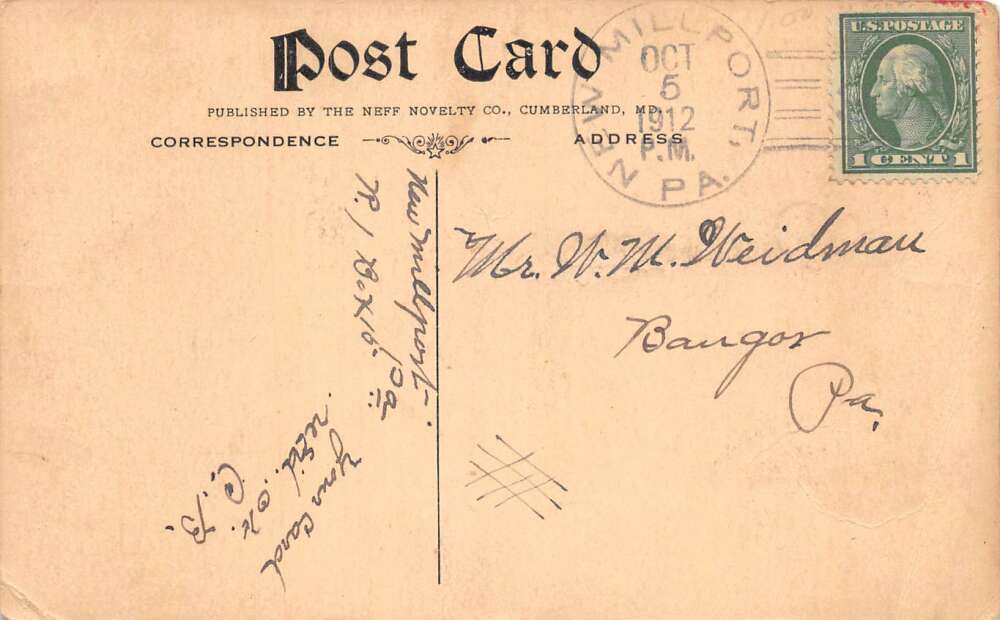 Post Card
PUBLISHED BY THE NEFF NOVELTY CO., CUMBERLAND, MD.
CORRESPONDENCE
ADDRESS
NEW MILLPORT, PA.
OCT
5
1912
P.M.
U.S. POSTAGE
1 CENT 1
Mr. W. M. Weidman
Bangor
Pa.
New Millport
Pa
R. 1 Box 15
your Card
rec'd. ok.
C. B.